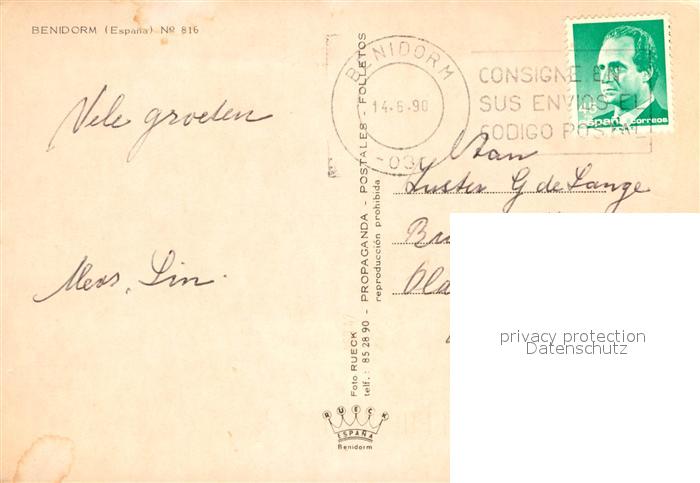 BENIDORM (España) Nº 816
Vele groeten
Lin.
Foto RUECK - PROPAGANDA - POSTALES - FOLLETOS
telf.: 85 28 90
reproducción prohibida
RUECK
ESPAÑA
Benidorm
BENIDORM
14-6-90
CONSIGNE EN
SUS ENVIOS EL
CODIGO POSTAL
45
España correos
G de Lange
privacy protection
Datenschutz